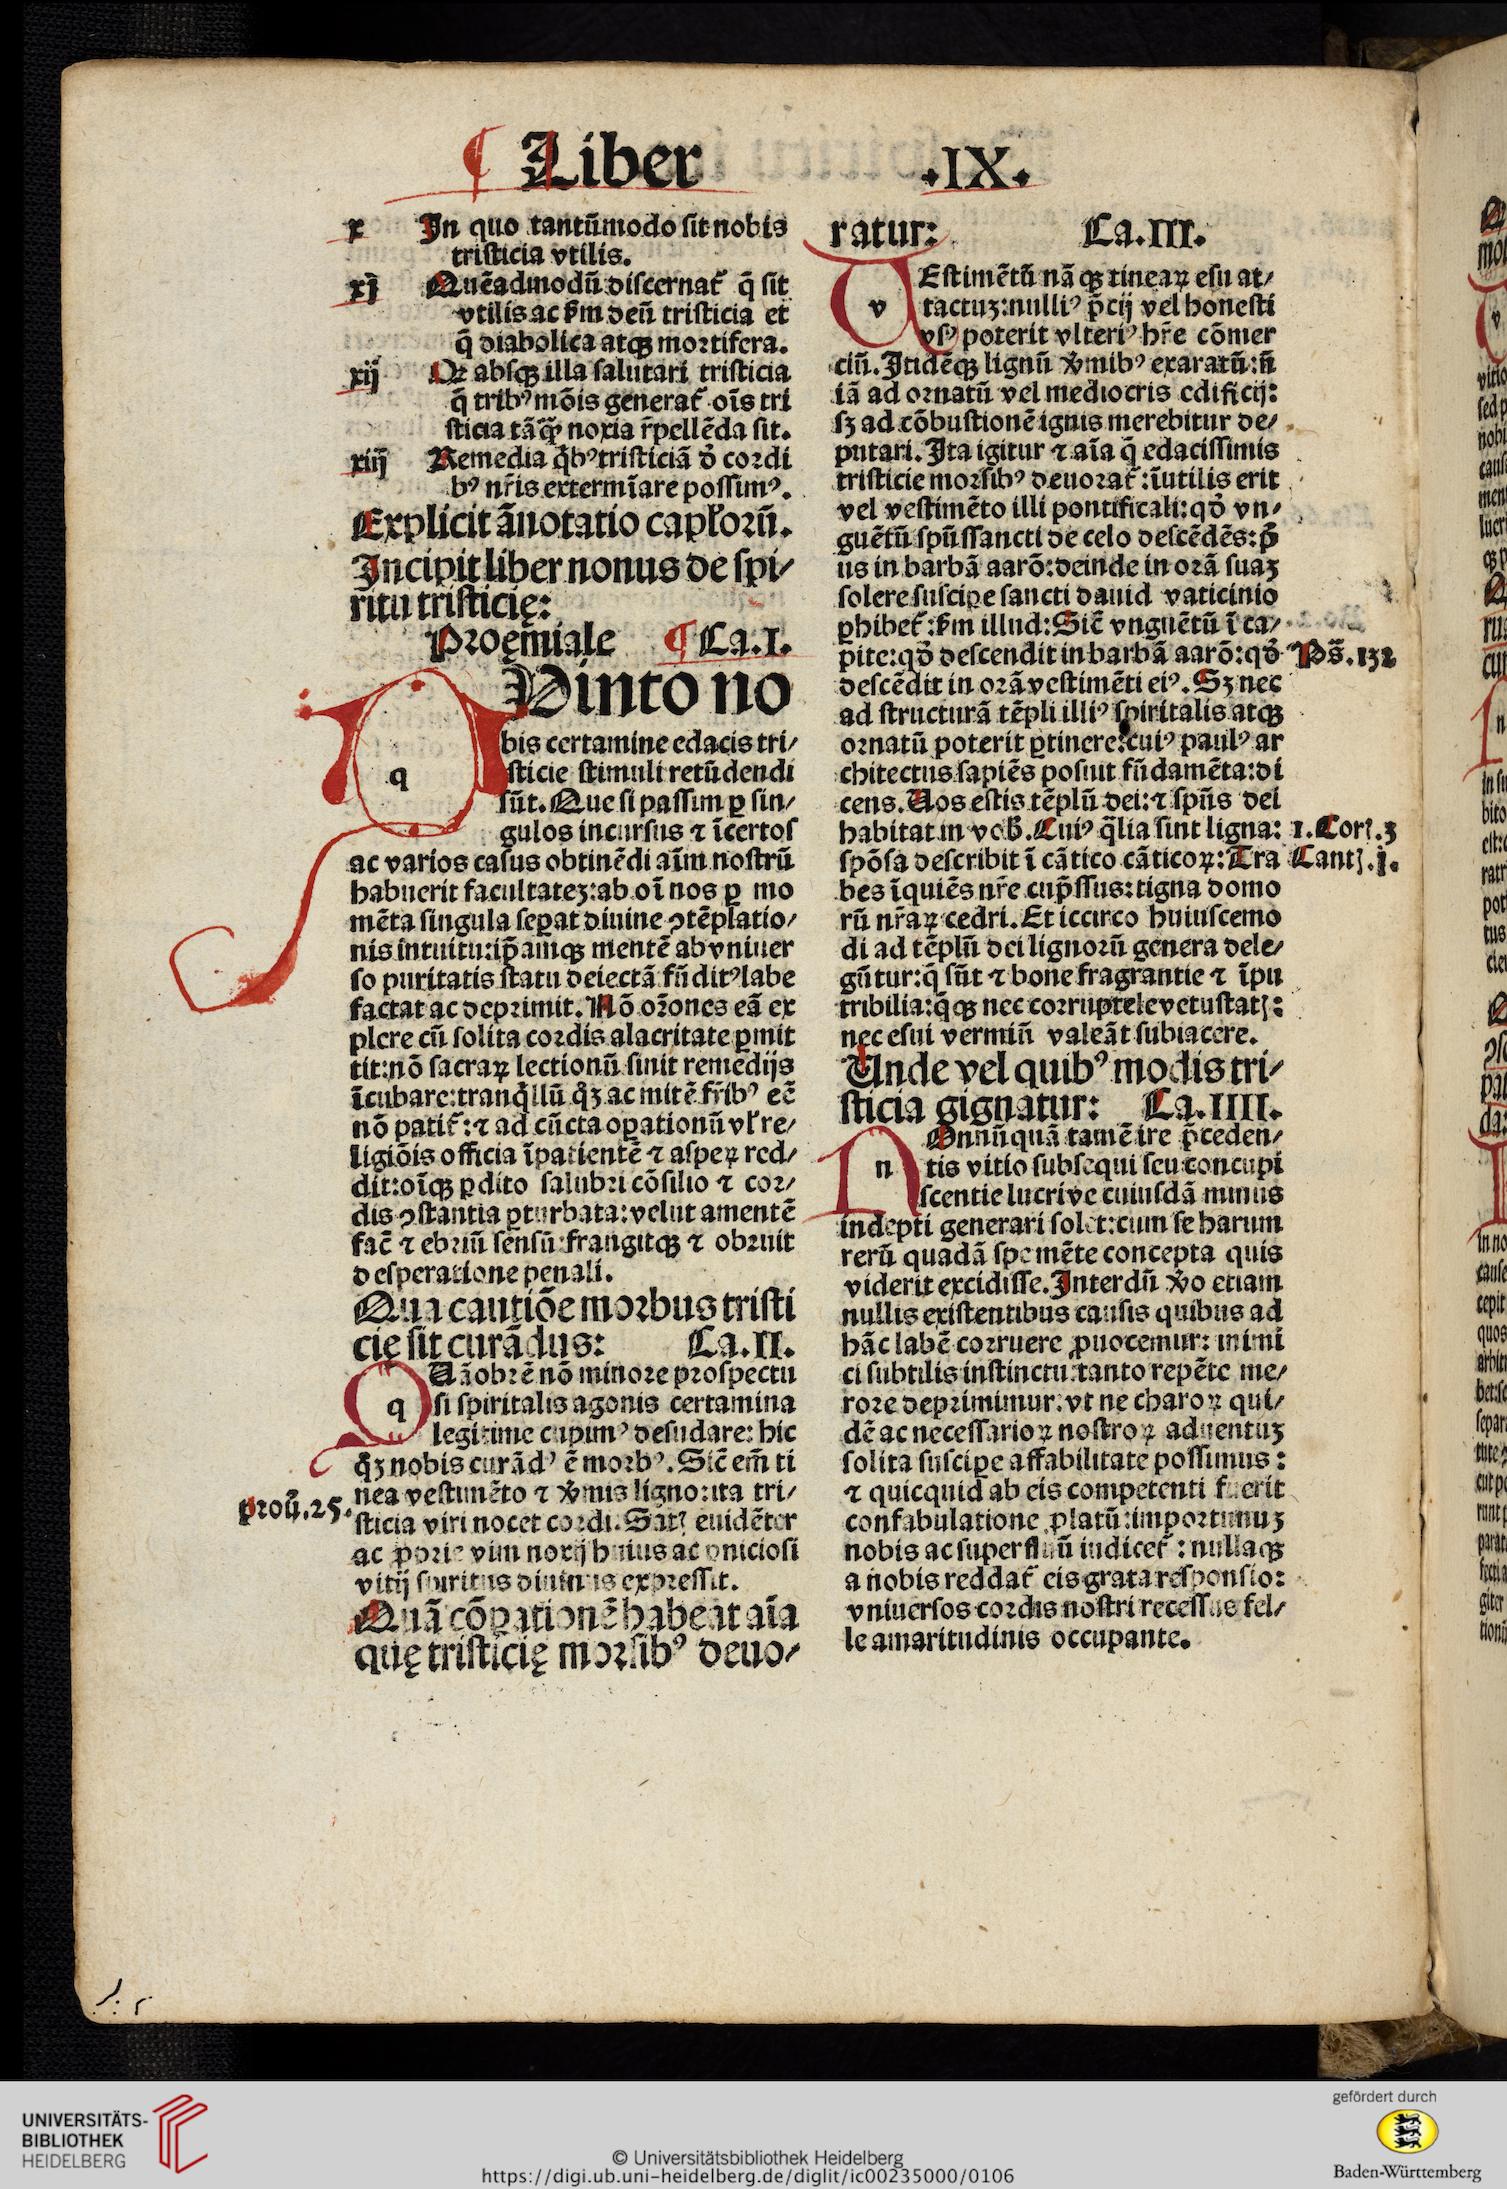 ¶ Liber
.IX.
x In quo tantũmodo ſit nobis
triſticia vtilis.
xj Quẽadmodũ diſcernat᷑ q̃ ſit
vtilis ac ẜm deũ triſticia et
q̃ diabolica atqꝫ moꝛtifera.
xij Qꝛ abſqꝫ illa ſalutari triſticia
q̃ tribꝰ mõis generat᷑ oĩs tri
ſticia tãq̃ꝫ noxia r̃pellẽda ſit.
xiij Remedia q̃bꝰ triſticiã ð coꝛdi
bꝰ nr̃is extermĩare poſſimꝰ.
Explicit ãnotatio capl'oꝛũ.
Incipit liber nonus de ſpi⸗
ritu triſticię:
Pꝛoęmiale ¶ Ca.I.
q
Uinto no
bis certamine edacis tri⸗
ſticie ſtimuli retũdendi
ſũt. Que ſi paſſim ꝑ ſin⸗
gulos incurſus ⁊ ĩcertoſ
ac varios caſus obtinẽdi aĩm noſtrũ
habuerit facultateꝫ: ab oĩ nos ꝑ mo
mẽta ſingula ſeꝑat diuine ꝯtẽplatio⸗
nis intuitu: ip̃amqꝫ mentẽ ab vniuer
ſo puritatis ſtatu deiectã fũditꝰ labe
factat ac depꝛimit. Nõ oꝛ̃ones eã ex
plere cũ ſolita coꝛdis alacritate ꝑmit
tit: nõ ſacraꝝ lectionũ ſinit remedijs
ĩcubare: tranq̃llũ q̃ꝫ ac mitẽ fr̃ibꝰ eẽ
nõ patit᷑: ⁊ ad cũcta oꝑationũ vl' re⸗
ligiõis officia ĩpatientẽ ⁊ aſpeꝝ red⸗
dit: oĩqꝫ ꝑdito ſalubꝛi cõſilio ⁊ coꝛ⸗
dis ꝯſtantia ꝑturbata: velut amentẽ
fac̃ ⁊ ebꝛiũ ſenſũ frangitqꝫ ⁊ obꝛuit
deſperatione penali.
Qua cautiõe moꝛbus triſti
cię ſit curãdus: Ca.II.
q
Uãobꝛẽ nõ minoꝛe pꝛoſpectu
ſi ſpiritalis agonis certamina
legitime cupimꝰ deſudare: hic
q̃ꝫ nobis curãdꝰ ẽ moꝛbꝰ. Sic̃ em̃ ti
nea veſtimẽto ⁊ v̓mis ligno: ita tri⸗
Pꝛoũ.25.
ſticia viri nocet coꝛdi. Satꝭ euidẽter
ac ꝓpꝛie vim noxij huius ac ꝑnicioſi
vitij ſpiritus diuinus expꝛeſſit.
Quã cõꝑationẽ habeat aĩa
quę triſticię moꝛſibꝰ deuo⸗
ratur: Ca.III.
v
Eſtimẽtũ nãqꝫ tineaꝝ eſu at⸗
tactuꝫ: nulliꝰ p̃cij vel honeſti
vſꝰ poterit vlteriꝰ hr̃e cõmer
ciũ. Itidẽqꝫ lignũ v̓mibꝰ exaratũ: ñ
iã ad oꝛnatũ vel mediocris edificij:
ſꝫ ad cõbuſtionẽ ignis merebitur de⸗
putari. Ita igitur ⁊ aĩa q̃ edaciſſimis
triſticie moꝛſibꝰ deuoꝛat᷑: ĩutilis erit
vel veſtimẽto illi pontificali: qð vn⸗
guẽtũ ſpũſſancti de celo deſcẽdẽs: pͥ
us in barbã aarõ: deinde in oꝛã ſuaꝫ
ſolere ſuſcipe ſancti dauid vaticinio
ꝑhibet᷑: ẜm illud: Sic̃ vnguẽtũ ĩ ca⸗
pite: qð deſcendit in barbã aarõ: qð
Pš.132
deſcẽdit in oꝛã veſtimẽti eiꝰ. Sꝫ nec
ad ſtructurã tẽpli illiꝰ ſpiritalis atqꝫ
oꝛnatũ poterit ꝑtinere: cuiꝰ paulꝰ ar
chitectus ſapiẽs poſuit fũdamẽta: di
cens. Uos eſtis tẽplũ dei: ⁊ ſpũs dei
habitat in vob̃. Cuiꝰ q̃lia ſint ligna:
1.Coꝛꝭ.3
ſpõſa deſcribit ĩ cãtico cãticoꝝ: Tra
Cantꝭ.j.
bes ĩquiẽs nr̃e cup̃ſſus: tigna domo
rũ nr̃aꝝ cedri. Et iccirco huiuſcemo
di ad tẽplũ dei lignoꝛũ genera dele⸗
gũtur: q̃ ſũt ⁊ bone fragrantie ⁊ ĩpu
tribilia: q̃qꝫ nec coꝛruptele vetuſtatꝭ:
nec eſui vermiũ valeãt ſubiacere.
Unde vel quibꝰ modis tri⸗
ſticia gignatur: Ca.IIII.
n
Onnũquã tamẽ ire p̃ceden⸗
tis vitio ſubſequi ſeu concupi
ſcentie lucrive cuiuſdã minus
indepti generari ſolet: cum ſe harum
rerũ quadã ſpe mẽte concepta quis
viderit excidiſſe. Interdũ v̓o etiam
nullis exiſtentibus cauſis quibus ad
hãc labẽ coꝛruere ꝓuocemur: inimi
ci ſubtilis inſtinctu tanto repẽte me⸗
roꝛe depꝛimimur: vt ne charoꝝ qui⸗
dẽ ac neceſſarioꝝ noſtroꝝ aduentuꝫ
ſolita ſuſcipe affabilitate poſſimus:
⁊ quicquid ab eis competenti fuerit
confabulatione ꝓlatũ: impoꝛtunuꝫ
nobis ac ſuperfluũ iudicet᷑: nullaqꝫ
a nobis reddat᷑ eis grata reſponſio:
vniuerſos coꝛdis noſtri receſſus fel⸗
le amaritudinis occupante.
UNIVERSITÄTS-
BIBLIOTHEK
HEIDELBERG
© Universitätsbibliothek Heidelberg
https://digi.ub.uni-heidelberg.de/diglit/ic00235000/0106
gefördert durch
Baden-Württemberg